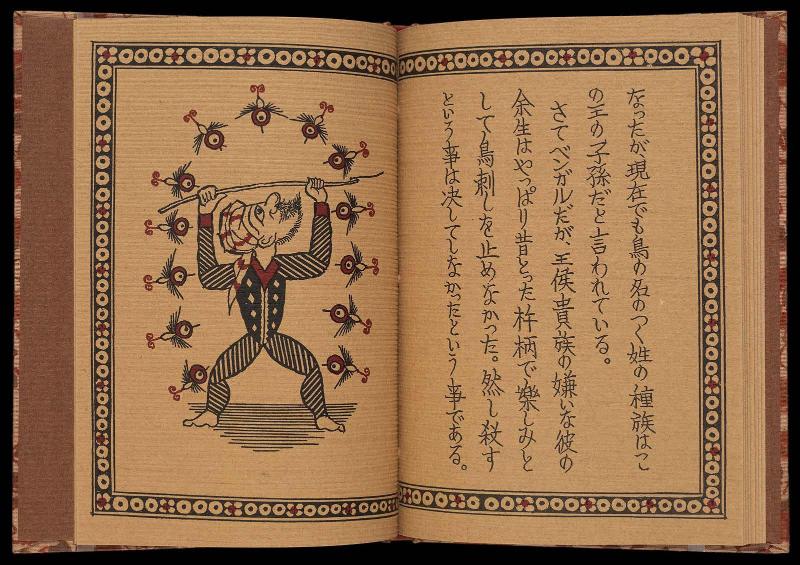 なったが現在でも鳥の名のつく姓の種族はこ
の王の子孫だと言われている。
さてベンガルだが、王侯貴族の嫌いな彼の
余生はやっぱり昔とった杵柄で楽しみと
して鳥刺しを止めなかった。然し殺す
という事は決してしなかったという事である。